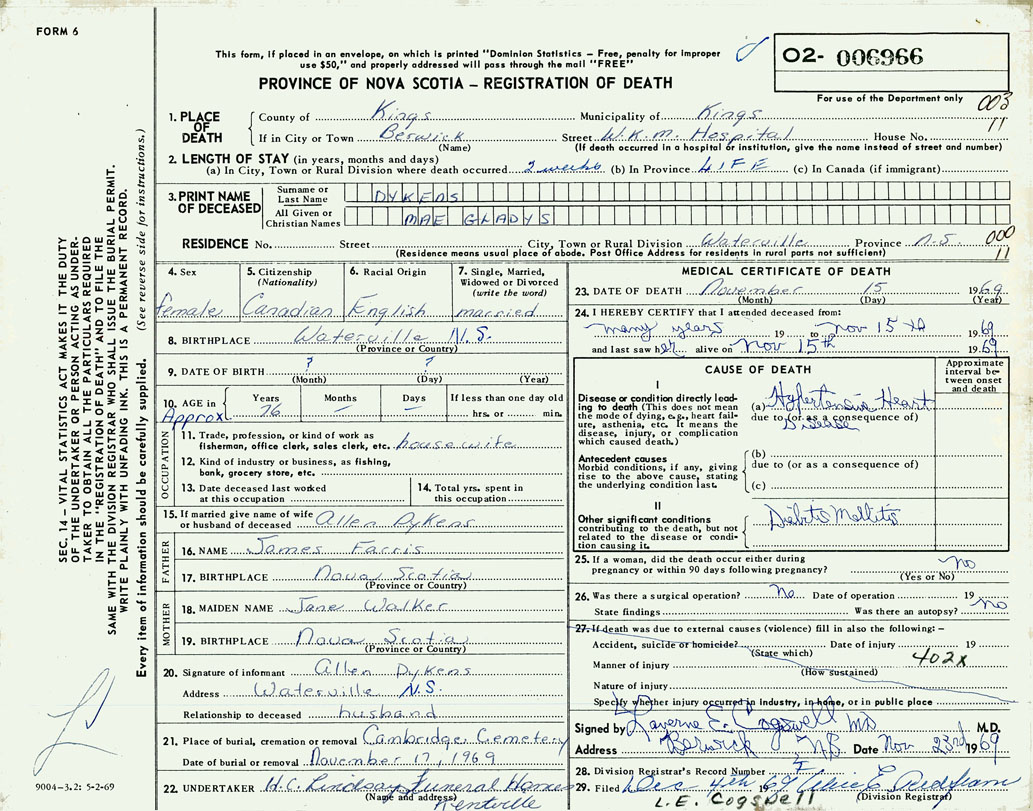 FORM 6
This form, if placed in an envelope, on which is printed "Dominion Statistics – Free, penalty for improper
use $50," and properly addressed will pass through the mail "FREE"
PROVINCE OF NOVA SCOTIA – REGISTRATION OF DEATH
02- 006966
For use of the Department only
003
11
1. PLACE OF DEATH
County of Kings Municipality of Kings
If in City or Town Berwick Street W.K.M. Hospital House No.
(Name) (If death occurred in a hospital or institution, give the name instead of street and number)
2. LENGTH OF STAY (in years, months and days)
(a) In City, Town or Rural Division where death occurred 2 weeks (b) In Province LIFE (c) In Canada (if immigrant)
3. PRINT NAME OF DECEASED
Surname or Last Name DYKENS
All Given or Christian Names MAE GLADYS
RESIDENCE No. Street City, Town or Rural Division Waterville Province N.S.
000
11
(Residence means usual place of abode. Post Office Address for residents in rural parts not sufficient)
4. Sex
female
5. Citizenship (Nationality)
Canadian
6. Racial Origin
English
7. Single, Married, Widowed or Divorced (write the word)
married
8. BIRTHPLACE Waterville N.S.
(Province or Country)
9. DATE OF BIRTH ? ?
(Month) (Day) (Year)
10. AGE in Years Months Days If less than one day old
Approx 76 – – hrs. or min.
OCCUPATION
11. Trade, profession, or kind of work as
fisherman, office clerk, sales clerk, etc. housewife
12. Kind of industry or business, as fishing,
bank, grocery store, etc.
13. Date deceased last worked
at this occupation
14. Total yrs. spent in
this occupation
15. If married give name of wife
or husband of deceased Allen Dykens
FATHER
16. NAME James Farris
17. BIRTHPLACE Nova Scotia
(Province or Country)
MOTHER
18. MAIDEN NAME Jane Walker
19. BIRTHPLACE Nova Scotia
(Province or Country)
20. Signature of informant Allen Dykens
Address Waterville N.S.
Relationship to deceased husband
21. Place of burial, cremation or removal Cambridge Cemetery
Date of burial or removal November 17, 1969
22. UNDERTAKER H.C. Lindsay Funeral Home
(Name and address)
Kentville
MEDICAL CERTIFICATE OF DEATH
23. DATE OF DEATH November 15 1969
(Month) (Day) (Year)
24. I HEREBY CERTIFY that I attended deceased from:
many years 19 to Nov 15th 1969
and last saw her alive on Nov 15th 1969
CAUSE OF DEATH
Approximate interval between onset and death
I
Disease or condition directly leading to death (This does not mean the mode of dying, e.g., heart failure, asthenia, etc. It means the disease, injury, or complication which caused death.)
(a) Hypertensive Heart
due to (or as a consequence of)
Disease
Antecedent causes
Morbid conditions, if any, giving rise to the above cause, stating the underlying condition last.
(b)
due to (or as a consequence of)
(c)
II
Other significant conditions contributing to the death, but not related to the disease or condition causing it.
Diabetes Mellitis
25. If a woman, did the death occur either during
pregnancy or within 90 days following pregnancy? no
(Yes or No)
26. Was there a surgical operation? no Date of operation 19
State findings Was there an autopsy? no
27. If death was due to external causes (violence) fill in also the following: –
Accident, suicide or homicide? Date of injury 19
(State which)
402X
Manner of injury
(How sustained)
Nature of injury
Specify whether injury occurred in industry, in home, or in public place
Signed by Laverne E. Cogswell MD M.D.
Address Berwick NS Date Nov 23rd 1969
28. Division Registrar's Record Number
29. Filed Dec 4th 19
(Division Registrar)
L.E. Cogswell
SEC. 14 – VITAL STATISTICS ACT MAKES IT THE DUTY
OF THE UNDERTAKER OR PERSON ACTING AS UNDER-
TAKER TO OBTAIN ALL THE PARTICULARS REQUIRED
IN THE "REGISTRATION OF DEATH" AND TO FILE THE
SAME WITH THE DIVISION REGISTRAR WHO SHALL ISSUE THE BURIAL PERMIT.
WRITE PLAINLY WITH UNFADING INK. THIS IS A PERMANENT RECORD.
Every item of information should be carefully supplied. (See reverse side for instructions.)
9004-3.2: 5-2-69